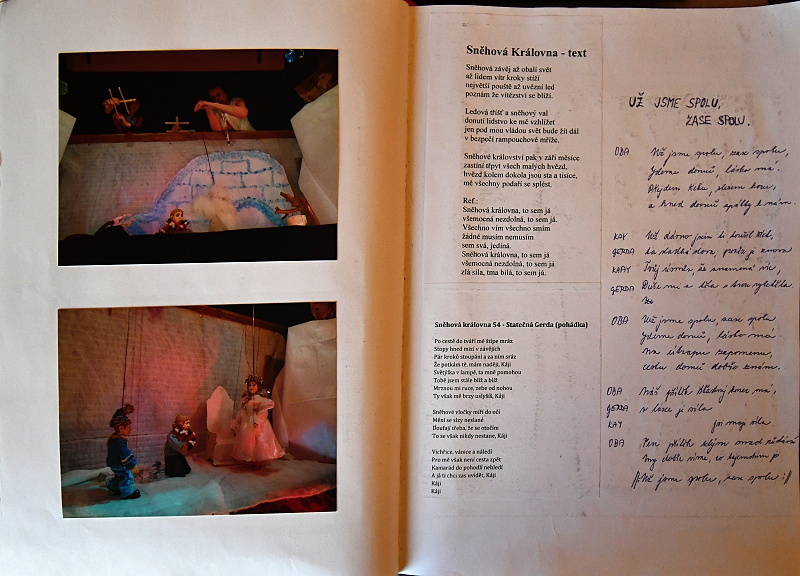 Sněhová Královna - text
Sněhová závěj až obalí svět
až lidem vítr kroky stíží
největší pouště až uvězní led
poznám že vítězství se blíží.
Ledová tříšť a sněhový val
donutí lidstvo ke mě vzhlížet
jen pod mou vládou svět bude žít dál
v bezpečí rampouchové mříže.
Sněhové království pak v záři měsíce
zastíní třpyt všech malých hvězd,
hvězd kolem dokola jsou sta a tisíce,
mě všechny podaří se splést.
Ref.:
Sněhová královna, to sem já
všemocná nezdolná, to sem já.
Všechno vím všechno smím
žádné musím nemusím
sem svá, jediná.
Sněhová královna, to sem já
všemocná nezdolná, to sem já
zlá síla, tma bílá, to sem já.
Sněhová královna 54 - Statečná Gerda (pohádka)
Po cestě do tváří mě štípe mráz
Stopy hned mizí v závějích
Pár kroků stoupání a za ním sráz
Že potkám tě, mám naději, Káji
Světýlka v lampě, ta mně pomohou
Tobě jsem stále blíž a blíž
Mrznou mi ruce, zebe od nohou
Ty však mě brzy uslyšíš, Káji
Sněhové vločky míří do očí
Mění se slzy neslané
Doufají třeba, že se otočím
To se však nikdy nestane, Káji
Vichřice, vánice a náledí
Pro mě však není cesta zpět
Kamarád do pohodí nehledí
A já ti chci zas uvidět, Káji
Káji
Káji
UŽ JSME SPOLU,
ZASE SPOLU.
OBA Už jsme spolu, zase spolu,
jdeme domů, lásko má.
a hned domů zpátky k nám.
KAY Už dávno jsem ti
GERDA
KAY
GERDA
OBA Už jsme spolu, zase spolu
jdeme domů, lásko má
zapomenu,
cestu domů dobře znám.
OBA Náš příběh šťastný konec má,
GERDA v lásce je síla
KAY síla
OBA Ten příběh
My dobře víme, co
//: Už jsme spolu, zase spolu ://